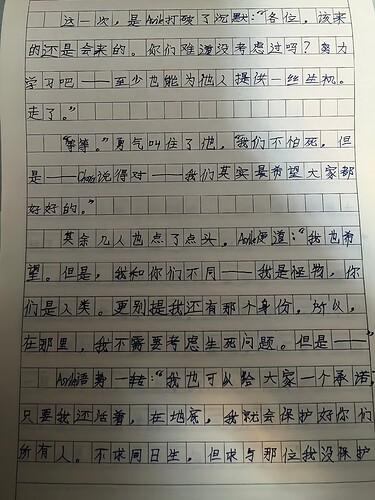 这一次，是Axile打破了沉默："各位，该来
的还是会来的。你们难道没考虑过吗？努力
学习吧——至少也能为他人提供一丝生机。
走了。"
"等等。"勇气叫住了他，"我们不怕死，但
是——说得对——我们其实是希望大家都
好好的。"
其余几人也点了点头。便道："我也希
望。但是，我和你们不同——我是怪物，你
们是人类。更别提我还有那个身份，所以，
在那里，我不需要考虑生死问题。但是——"
语势一转："我也可以给大家一个承诺，
只要我还活着，在地底，我就会保护好你们
所有人。不求同日生，但求与那位我没保护